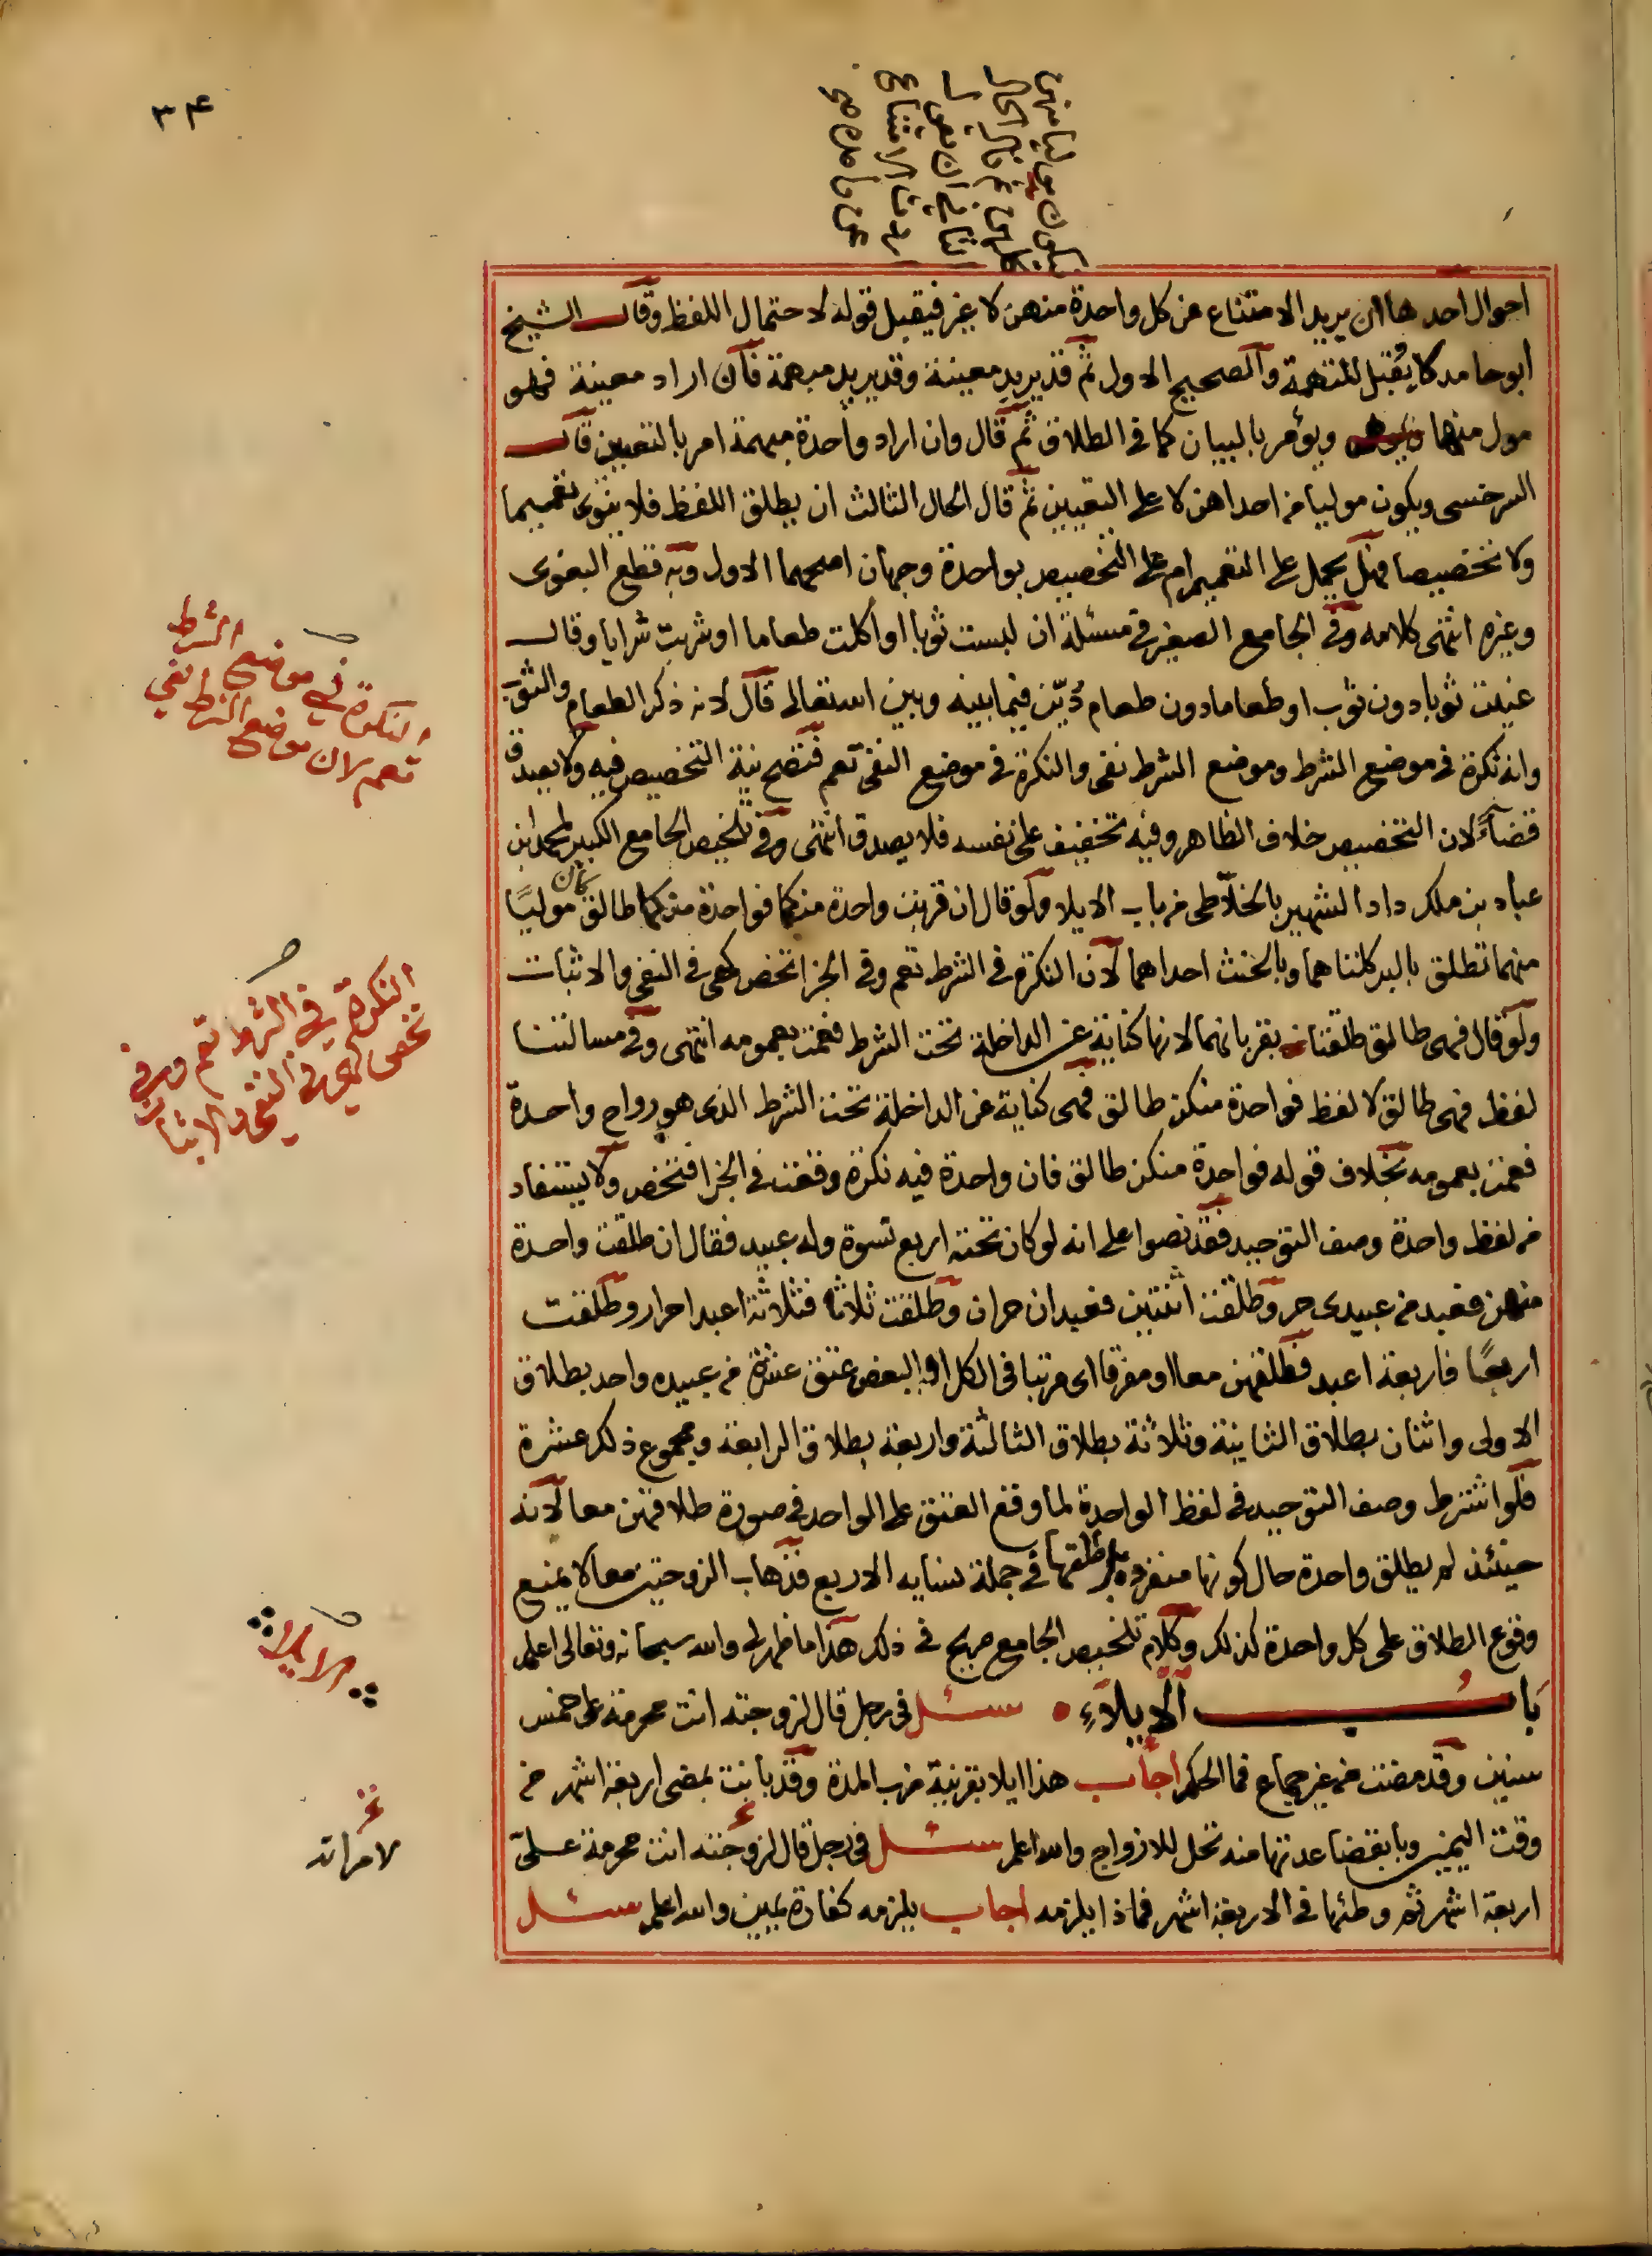 ٣٤
فيكون موليا منهن
كلهن غ قال الحال
الثاني ان يقول
اردت الامتناع
عن واحدة صح
احوال احدها ان يريد الامتناع عن كل واحدة منهن لا غير فيقبل قوله لاحتمال اللفظ وقال الشيخ
ابو حامد لا يُقبل للتهمة والصحيح الاول ثم قد يريد معينة وقد يريد مبهمة فان اراد معينة فهو
مول منها ويؤمر بالبيان كما في الطلاق ثم قال وان اراد واحدة مبهمة امر بالتعيين قال
السرخسي ويكون موليا من احداهن لا على التعيين ثم قال الحال الثالث ان يطلق اللفظ فلا ينوى تعميما
ولا تخصيصا فهل يحمل على التعميم ام على التخصيص بواحدة وجهان اصحهما الاول وبه قطع البغوى
وغيره انتهى كلامه وفي الجامع الصغير في مسئلة ان لبست ثوبا او اكلت طعاما او شربت شرابا وقال
عنيت ثوبا دون ثوب او طعاما دون طعام دُيّن فيما بينه وبين الله تعالى قال لانه ذكر الطعام والثوب
وانه نكرة في موضع الشرط وموضع الشرط نفى والنكرة في موضع النفى تعم فتصح نية التخصيص فيه ولا يصدق
قضاءً لان التخصيص خلاف الظاهر وفيه تخفيف على نفسه فلا يصدق انتهى وفي تلخيص الجامع الكبير لمحمد ابن
عباد بن ملك داد الشهير بالخلاطى من باب الايلا ولو قال ان قربت واحدة منكما فواحدة منكما طالق كان موليًا
منهما تطلق بالبر كلتاهما وبالحنث احداهما لان النكرة في الشرط تعم وفي الجزا تخص كهى في النفى والاثبات
ولو قال فهى طالق طلقتا بقربانهما لانها كناية عن الداخلة تحت الشرط فعمت بعمومه انتهى وفي مسالتنا
لفظ فهى طالق لا لفظ فواحدة منكن طالق فهى كناية عن الداخلة تحت الشرط الذى هو رواح واحدة
فعمت بعمومه بخلاف قوله فواحدة منكن طالق فان واحدة فيه نكرة وقعت في الجزا فتخص ولا يستفاد
من لفظ واحدة وصف التوحيد فقد نصوا على انه لو كان تحته اربع نسوة وله عبيد فقال ان طلقت واحدة
منهن فعبد من عبيدى حر وطلقت اثنتين فعبدان حران وطلقت ثلاثا فثلاثة اعبد احرار وطلقت
اربعًا فاربعة اعبد فطلقهن معا او مفرقا اى مرتبا في الكل او البعض عتق عشرة من عبيده واحد بطلاق
الاولى واثنان بطلاق الثانية وثلاثة بطلاق الثالثة واربعة بطلاق الرابعة ومجموع ذلك عشرة
فلو اشترط وصف التوحيد في لفظ الواحدة لما وقع العتق على الواحد في صورة طلاقهن معا لانه
حينئذ لم يطلق واحدة حال كونها منفردة بل طلقها في جملة نسايه الاربع فذهاب الزوجتين معا لا يمنع
وقوع الطلاق على كل واحدة كذلك وكلام تلخيص الجامع صريح في ذلك هذا ما ظهر لى والله سبحانه وتعالى اعلم
بابُ الايلاء سئل في رجل قال لزوجته انت محرمة على خمس
سنين وقد مضت من غير جماع فما الحكم اجاب هذا ايلا بقرينة ضرب المدة وقد بانت بمضى اربعة اشهر من
وقت اليمين وبانقضا عدتها منه تحل للازواج والله اعلم سئل في رجل قال لزوجته انت محرمة علىّ
اربعة اشهر ثم وطئها في الاربعة اشهر فماذا يلزمه اجاب يلزمه كفارة يمين والله اعلم سئل
النكرة في موضع الشرط
تعم لان موضع الشرط نفي
النكرة في الشرط تعم وفي
تخص كهى في النفى والاثبات
الايلا
لامراته